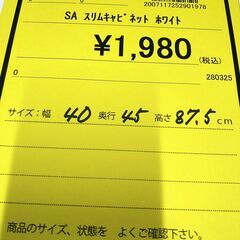 2007117252901978
SA スリムキャビネット ホワイト
¥1,980
(税込)
0 280325
サイズ:幅 40 奥行 45 高さ 87.5cm
商品のサイズ、状態を よくご確認下さい。